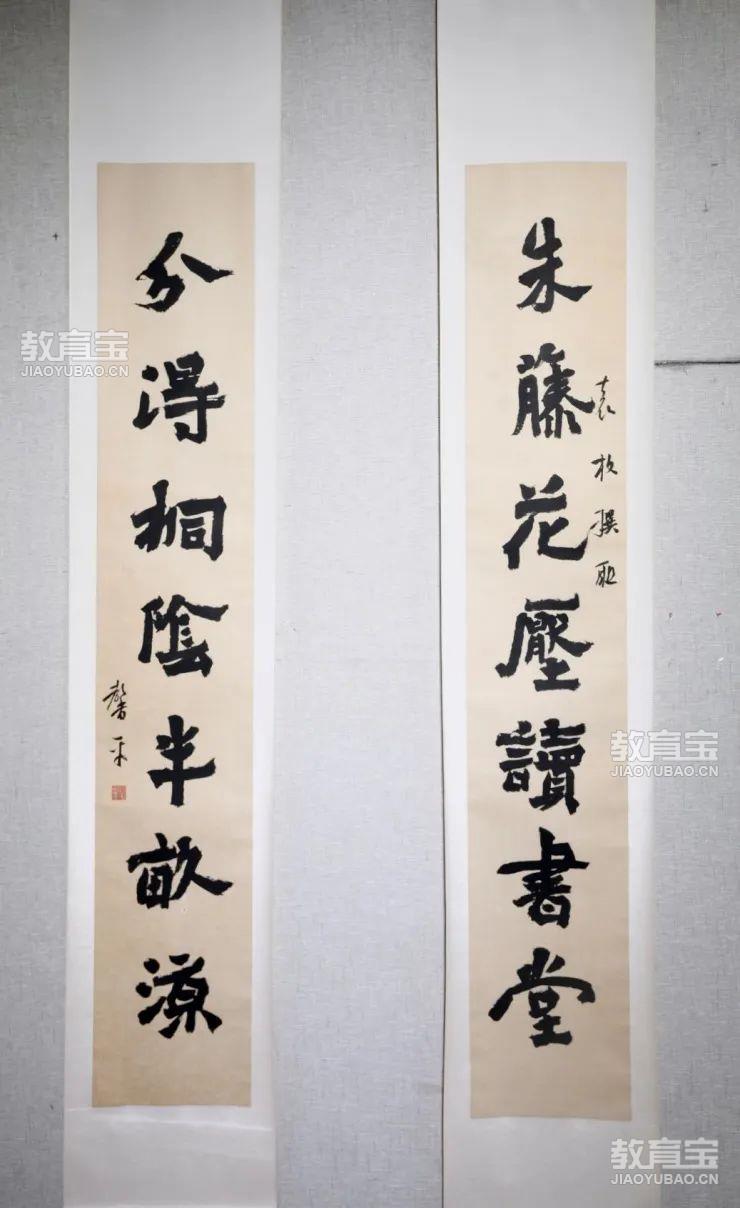 朱藤花壓讀書堂
袁枚撰聯
分得桐陰半畝涼
馨平
教育宝
JIAOYUBAO.CN
教育宝
JIAOYUBAO.CN
教育宝
JIAOYUBAO.CN